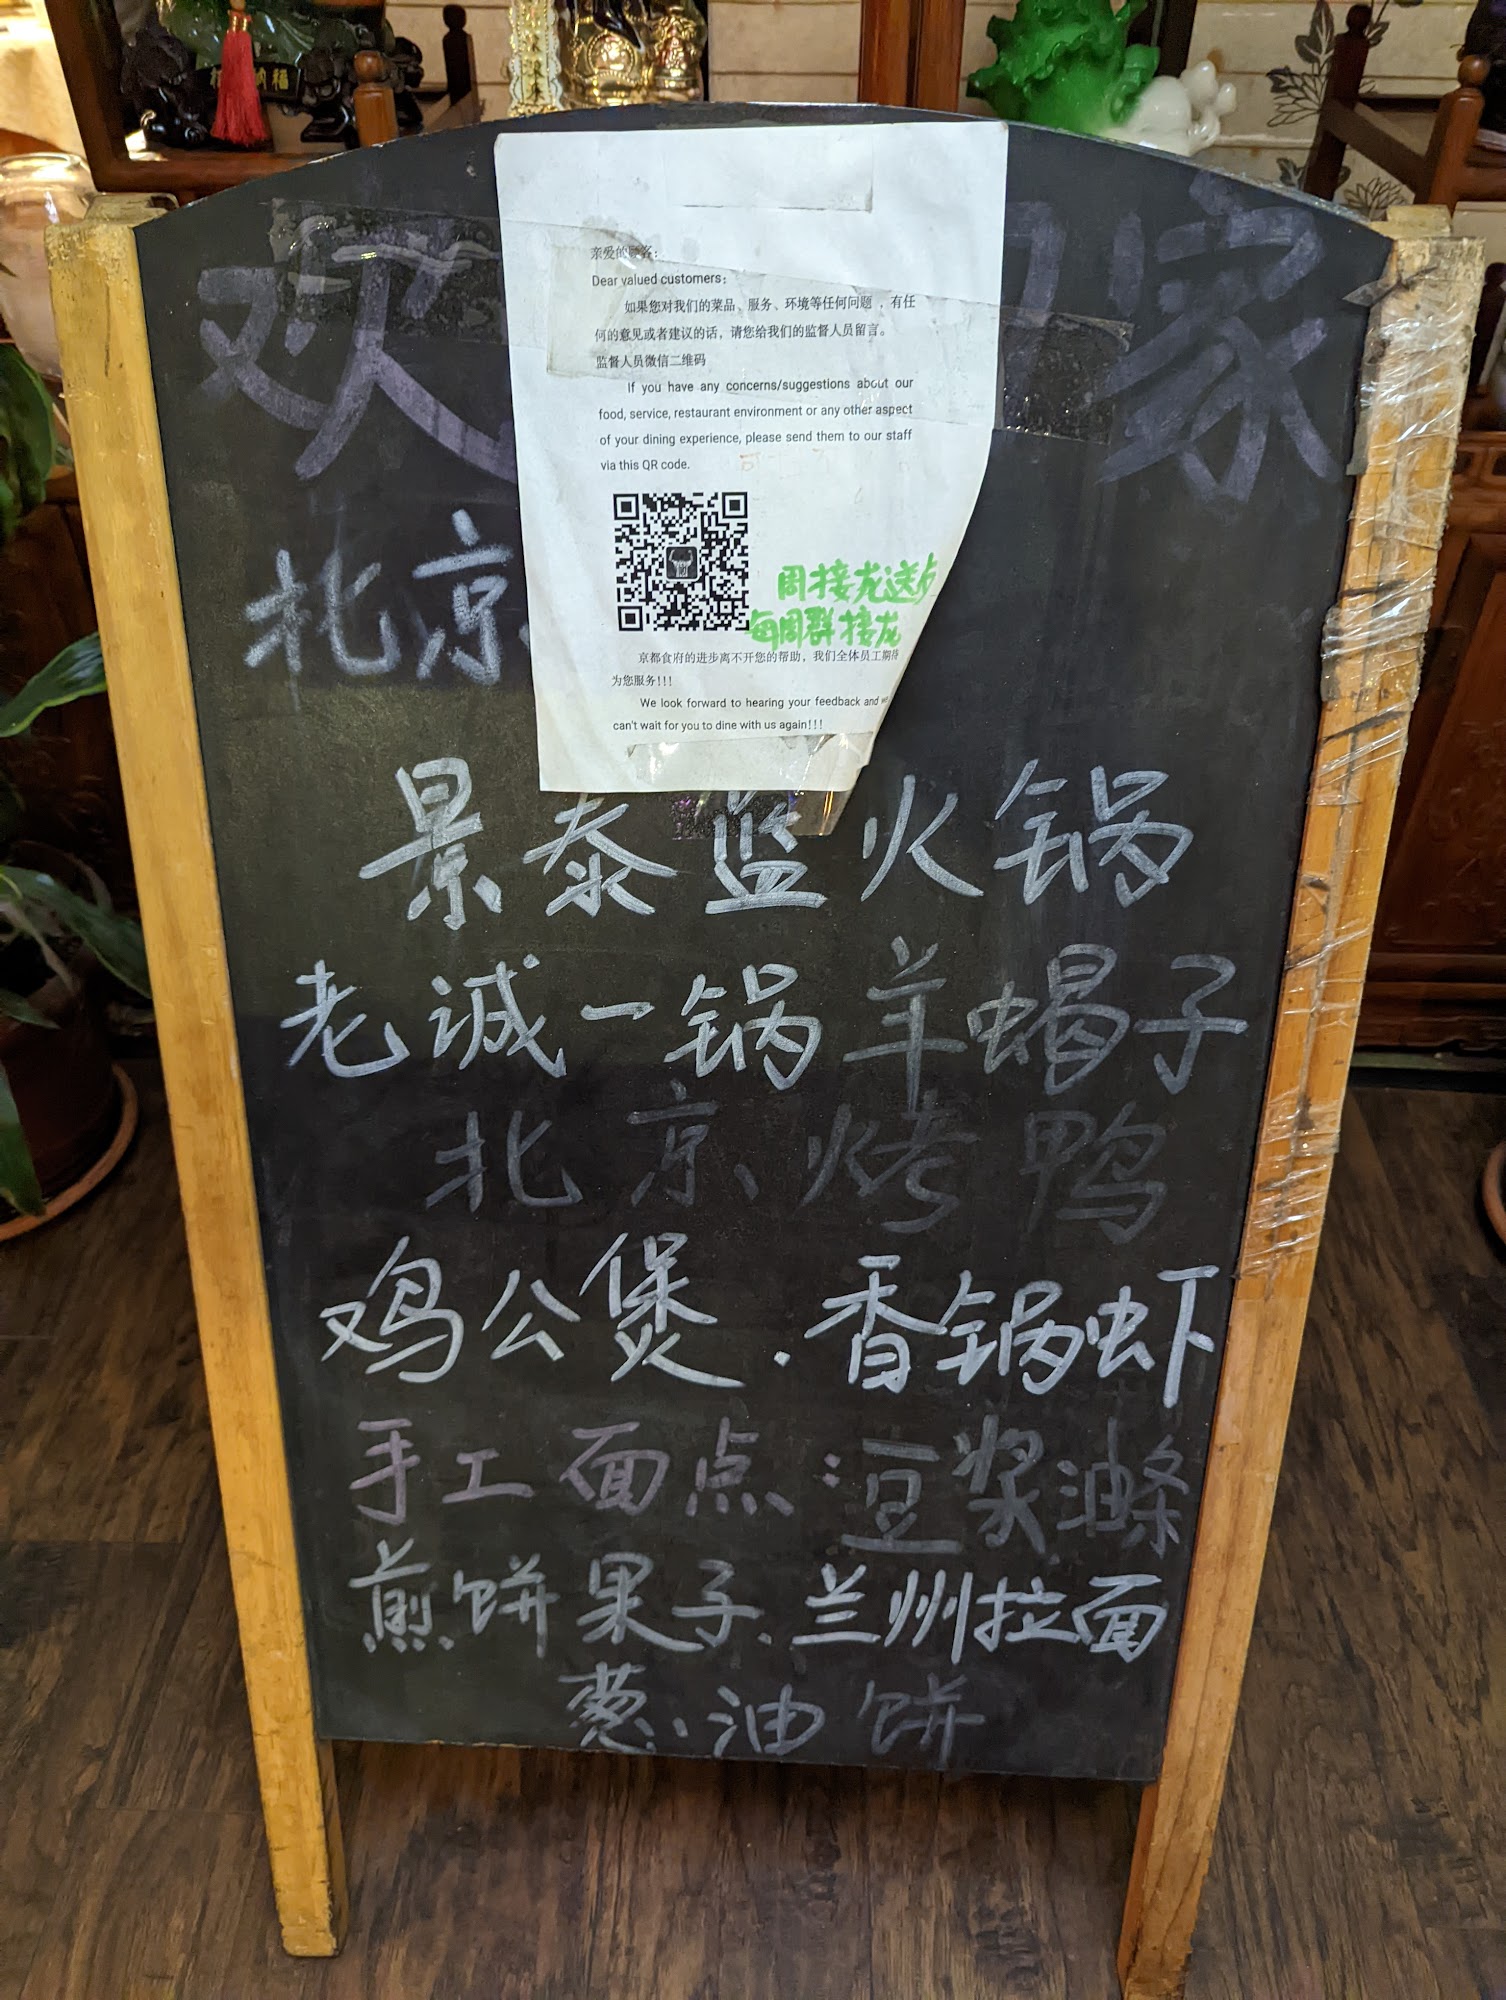 欢 家
亲爱的顾客：
Dear valued customers：
如果您对我们的菜品、服务、环境等任何问题，有任
何的意见或者建议的话，请您给我们的监督人员留言。
监督人员微信二维码
If you have any concerns/suggestions about our
food, service, restaurant environment or any other aspect
of your dining experience, please send them to our staff
via this QR code.
周接龙送
每周群接龙
京都食府的进步离不开您的帮助，我们全体员工期待
为您服务!!!
We look forward to hearing your feedback and
can't wait for you to dine with us again!!!
北京
景泰蓝火锅
老诚一锅羊蝎子
北京烤鸭
鸡公煲.香锅虾
手工面点:豆浆油条
煎饼果子、兰州拉面
葱油饼